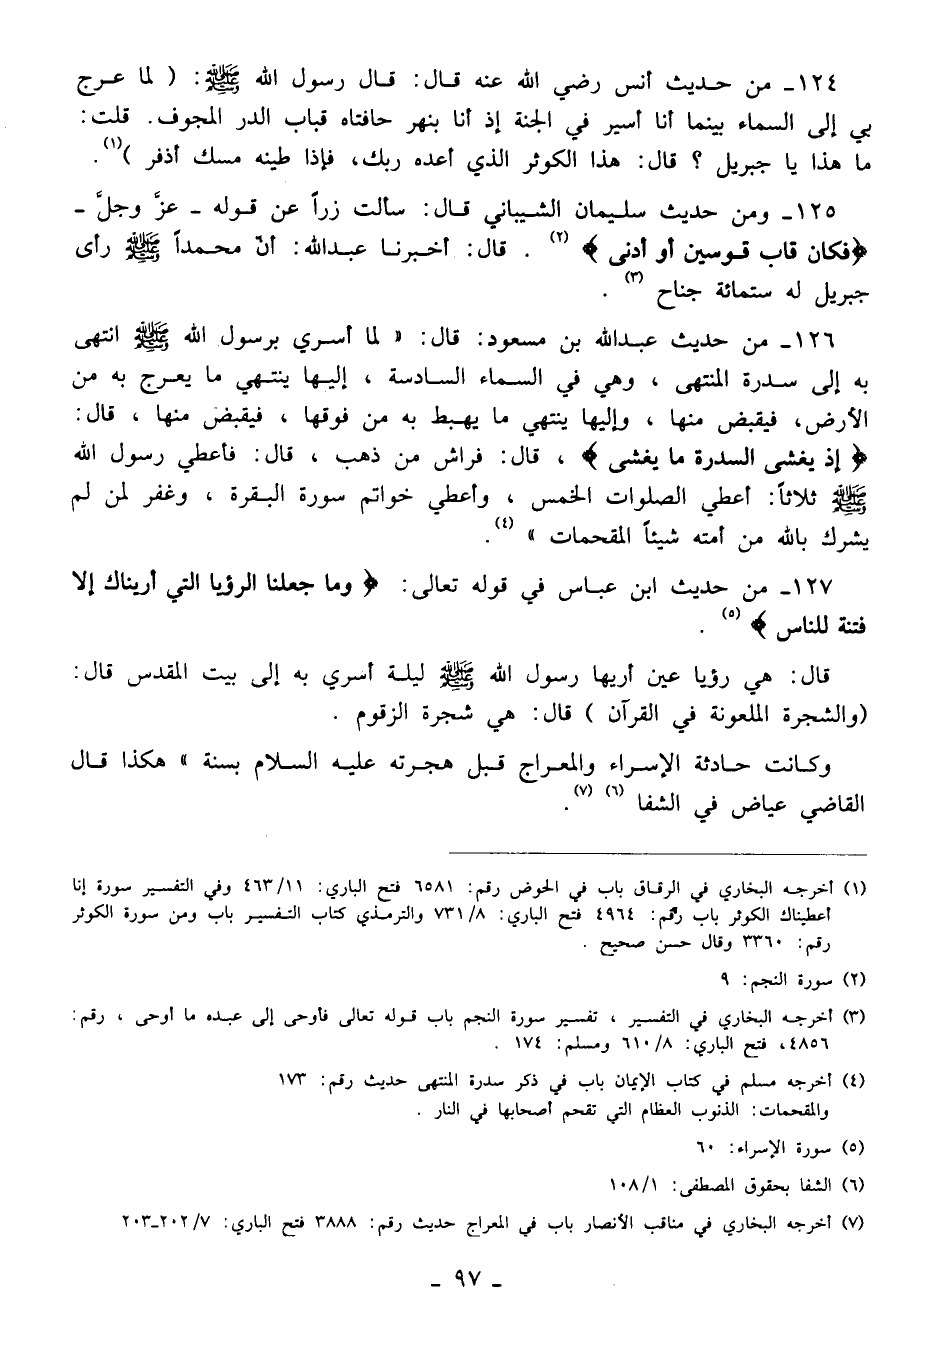 ١٢٤ـ من حديث أنس رضي الله عنه قال: قال رسول الله ﷺ: ( لما عرج
بي إلى السماء بينما أنا أسير في الجنة إذ أنا بنهر حافتاه قباب الدر المجوف. قلت:
ما هذا يا جبريل ؟ قال: هذا الكوثر الذي أعده ربك، فإذا طينه مسك أذفر )(١).
١٢٥ـ ومن حديث سليمان الشيباني قال: سألت زراً عن قوله ـ عزَّ وجلَّ ـ
﴿فكان قاب قوسين أو أدنى ﴾ (٢) . قال: أخبرنا عبدالله: أنّ محمداً ﷺ رأى
جبريل له ستمائة جناح (٣) .
١٢٦ـ من حديث عبدالله بن مسعود: قال: « لما أسري برسول الله ﷺ انتهى
به إلى سدرة المنتهى ، وهي في السماء السادسة ، إليها ينتهي ما يعرج به من
الأرض، فيقبض منها ، وإليها ينتهي ما يهبط به من فوقها ، فيقبض منها ، قال:
﴿ إذ يغشى السدرة ما يغشى ﴾ ، قال: فراش من ذهب ، قال: فأعطي رسول الله
ﷺ ثلاثاً: أعطي الصلوات الخمس ، وأعطي خواتم سورة البقرة ، وغفر لمن لم
يشرك بالله من أمته شيئاً المقحمات » (٤).
١٢٧ـ من حديث ابن عباس في قوله تعالى: ﴿ وما جعلنا الرؤيا التي أريناك إلا
فتنة للناس ﴾ (٥) .
قال: هي رؤيا عين أريها رسول الله ﷺ ليلة أسري به إلى بيت المقدس قال:
(والشجرة الملعونة في القرآن ) قال: هي شجرة الزقوم .
وكانت حادثة الإسراء والمعراج قبل هجرته عليه السلام بسنة » هكذا قال
القاضي عياض في الشفا (٦) (٧).
(١) أخرجه البخاري في الرقاق باب في الحوض رقم: ٦٥٨١ فتح الباري: ٤٦٣/١١ وفي التفسير سورة إنا
أعطيناك الكوثر باب رقم: ٤٩٦٤ فتح الباري: ٧٣١/٨ والترمذي كتاب التفسير باب ومن سورة الكوثر
رقم: ٣٣٦٠ وقال حسن صحيح .
(٢) سورة النجم: ٩
(٣) أخرجه البخاري في التفسير ، تفسير سورة النجم باب قوله تعالى فأوحى إلى عبده ما أوحى ، رقم:
٤٨٥٦، فتح الباري: ٦١٠/٨ ومسلم: ١٧٤ .
(٤) أخرجه مسلم في كتاب الإيمان باب في ذكر سدرة المنتهى حديث رقم: ١٧٣
والمقحمات: الذنوب العظام التي تقحم أصحابها في النار .
(٥) سورة الإسراء: ٦٠
(٦) الشفا بحقوق المصطفى: ١٠٨/١
(٧) أخرجه البخاري في مناقب الأنصار باب في المعراج حديث رقم: ٣٨٨٨ فتح الباري: ٢٠٢/٧ـ٢٠٣
ـ ٩٧ ـ